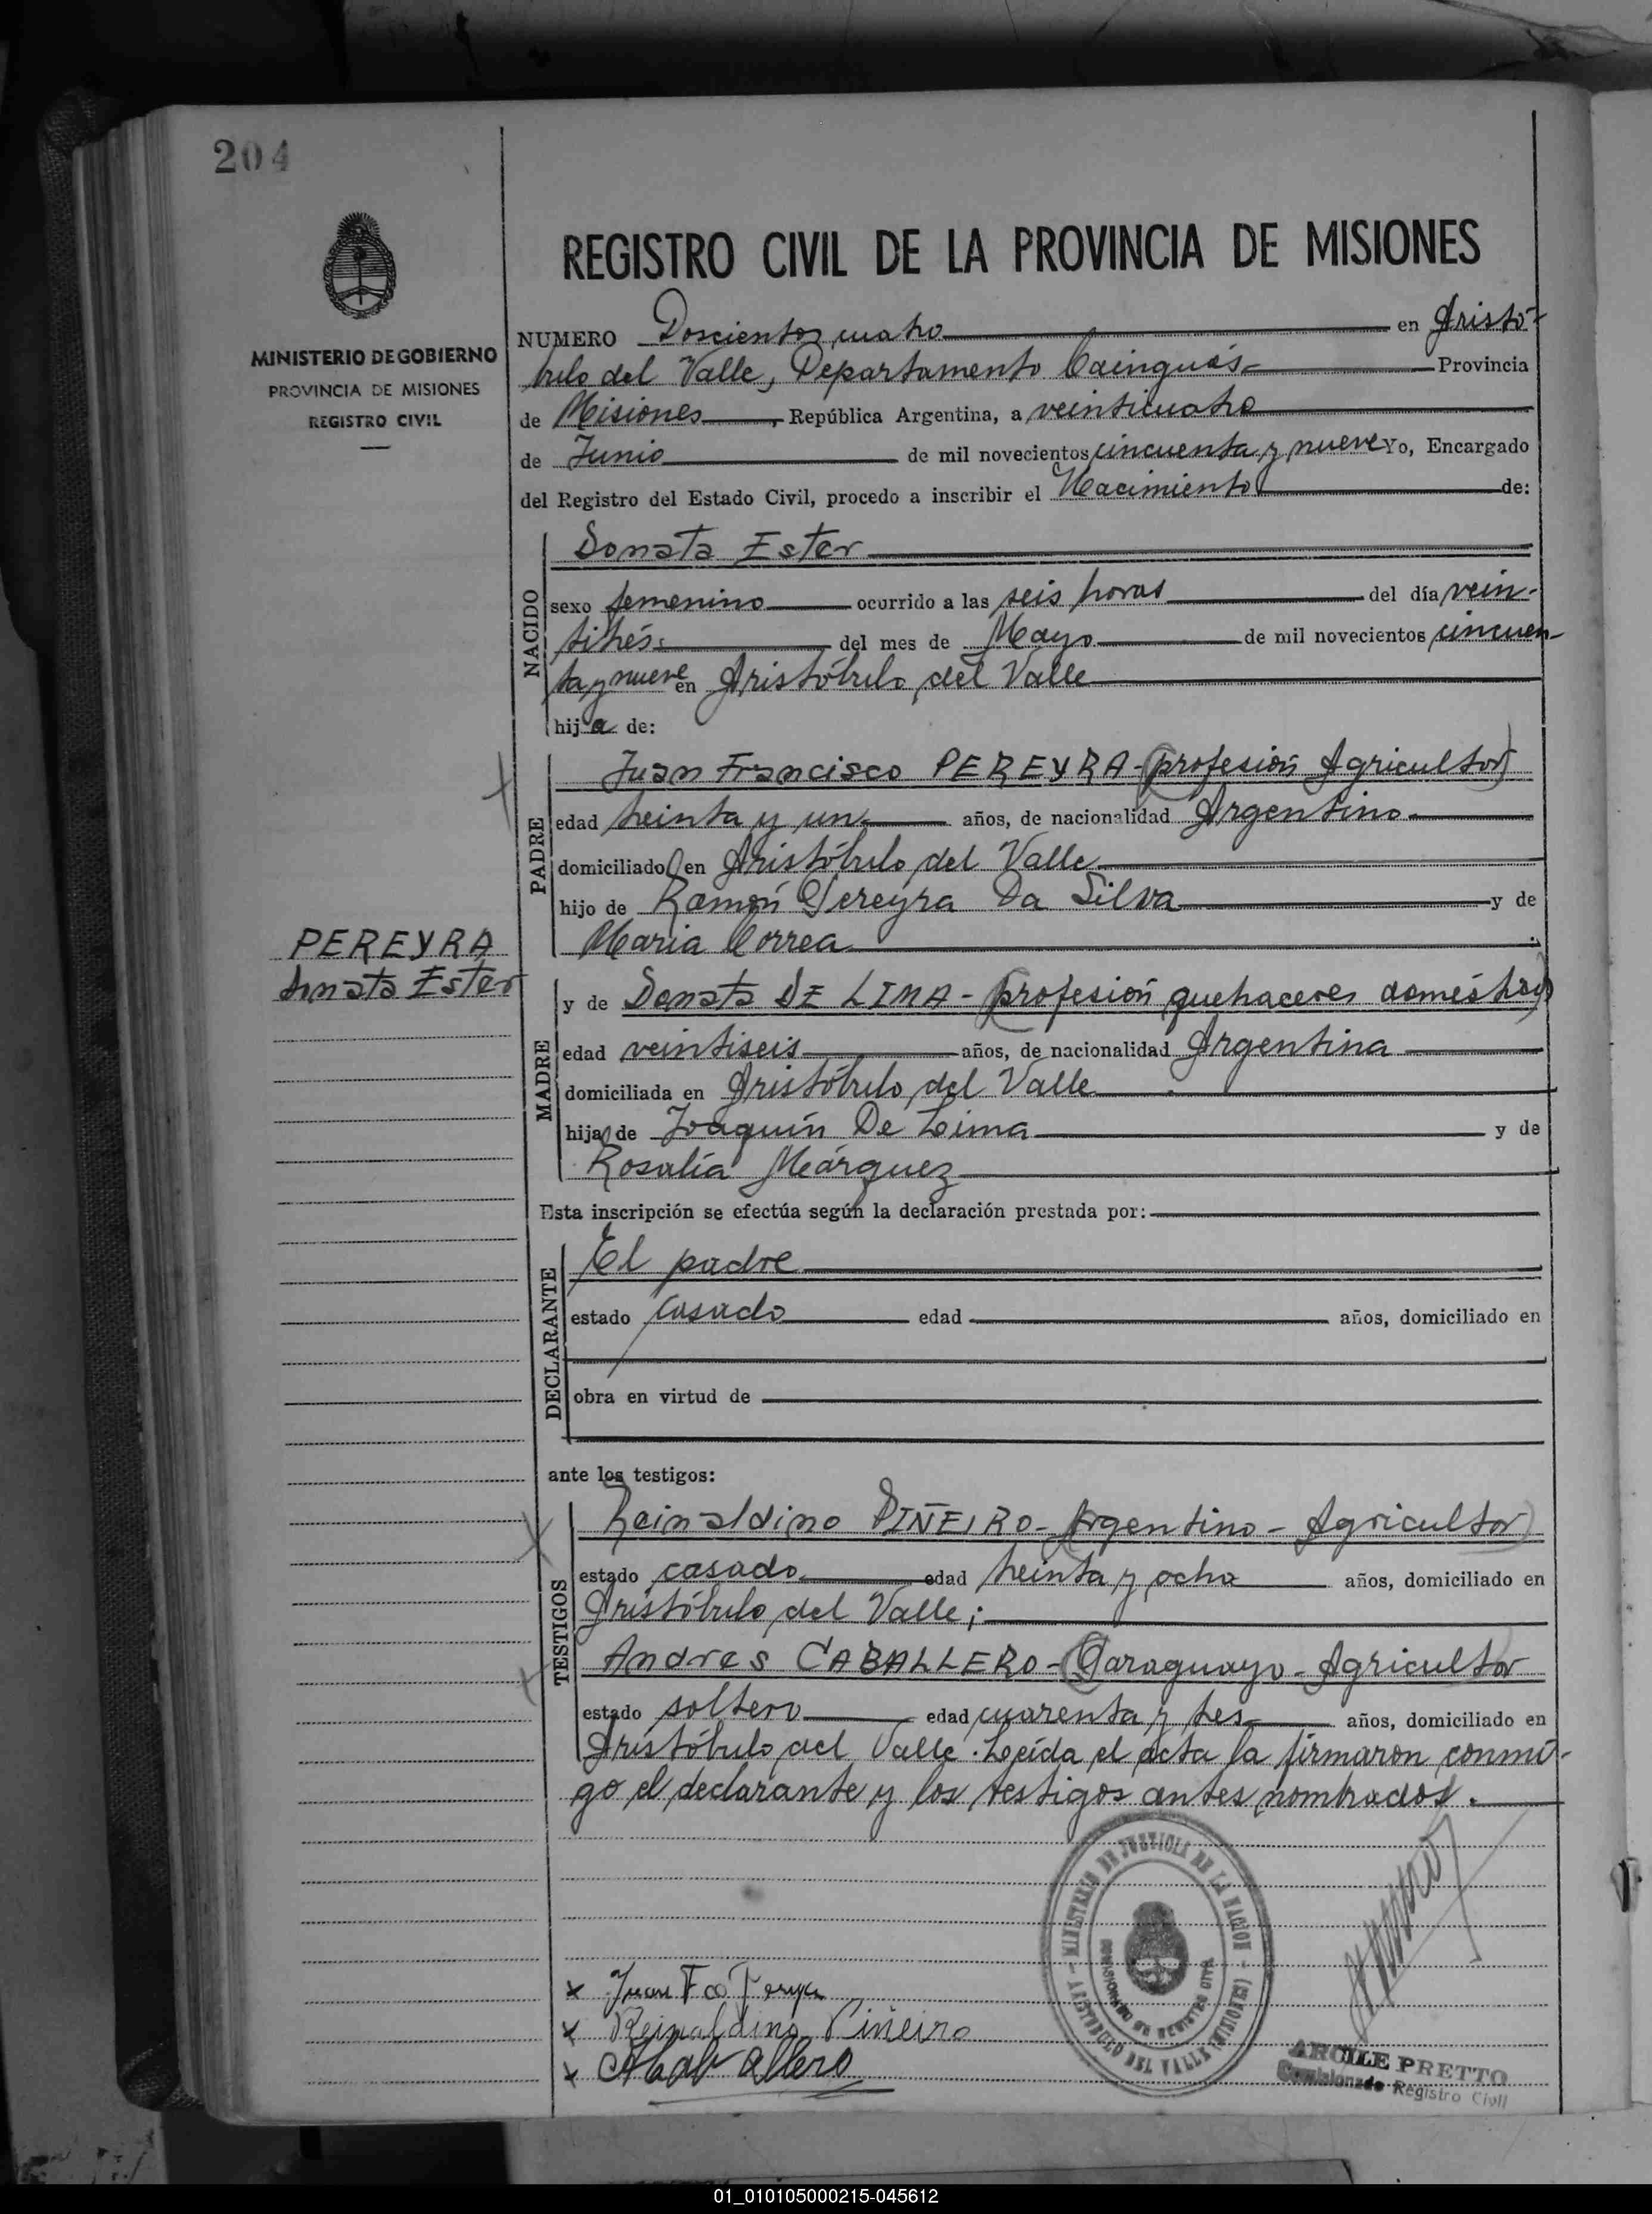 204
MINISTERIO DE GOBIERNO
PROVINCIA DE MISIONES
REGISTRO CIVIL
REGISTRO CIVIL DE LA PROVINCIA DE MISIONES
NUMERO Doscientos cuatro en Aristó-
bulo del Valle, Departamento Cainguás Provincia
de Misiones, República Argentina, a veinticuatro
de Junio de mil novecientos cincuenta y nueve Yo, Encargado
del Registro del Estado Civil, procedo a inscribir el Nacimiento de:
NACIDO
Donata Ester
sexo femenino ocurrido a las seis horas del día vein-
titrés: del mes de Mayo de mil novecientos cincuen-
ta y nueve en Aristóbulo del Valle
hija de:
PADRE
Juan Francisco PEREYRA-(profesión Agricultor)
edad treinta y un años, de nacionalidad Argentino
domiciliado en Aristóbulo del Valle
hijo de Ramón Pereyra Da Silva y de
Maria Correa
PEREYRA
Donata Ester
MADRE
y de Donata DE LIMA - (profesión quehaceres domésticos)
edad veintiseis años, de nacionalidad Argentina
domiciliada en Aristóbulo del Valle
hija de Joaquín De Lima y de
Rosalía Márquez
Esta inscripción se efectúa según la declaración prestada por:
DECLARANTE
El padre
estado casado edad años, domiciliado en
obra en virtud de
ante los testigos:
TESTIGOS
Reinaldino PIÑEIRO-(Argentino - Agricultor)
estado casado edad treinta y ocho años, domiciliado en
Aristóbulo del Valle;
Andres CABALLERO-(Paraguayo - Agricultor
estado soltero edad cuarenta y tres años, domiciliado en
Aristóbulo del Valle. Leída el acta la firmaron conmi-
go el declarante y los testigos antes nombrados.
MINISTERIO DE JUSTICIA DE LA NACION
ARISTOBULO DEL VALLE (MISIONES)
x Juan Fco Pereyra
x Reinaldino Piñeiro
x ACaballero
ARCILE PRETTO
Comisionado Registro Civil
01_010105000215-045612